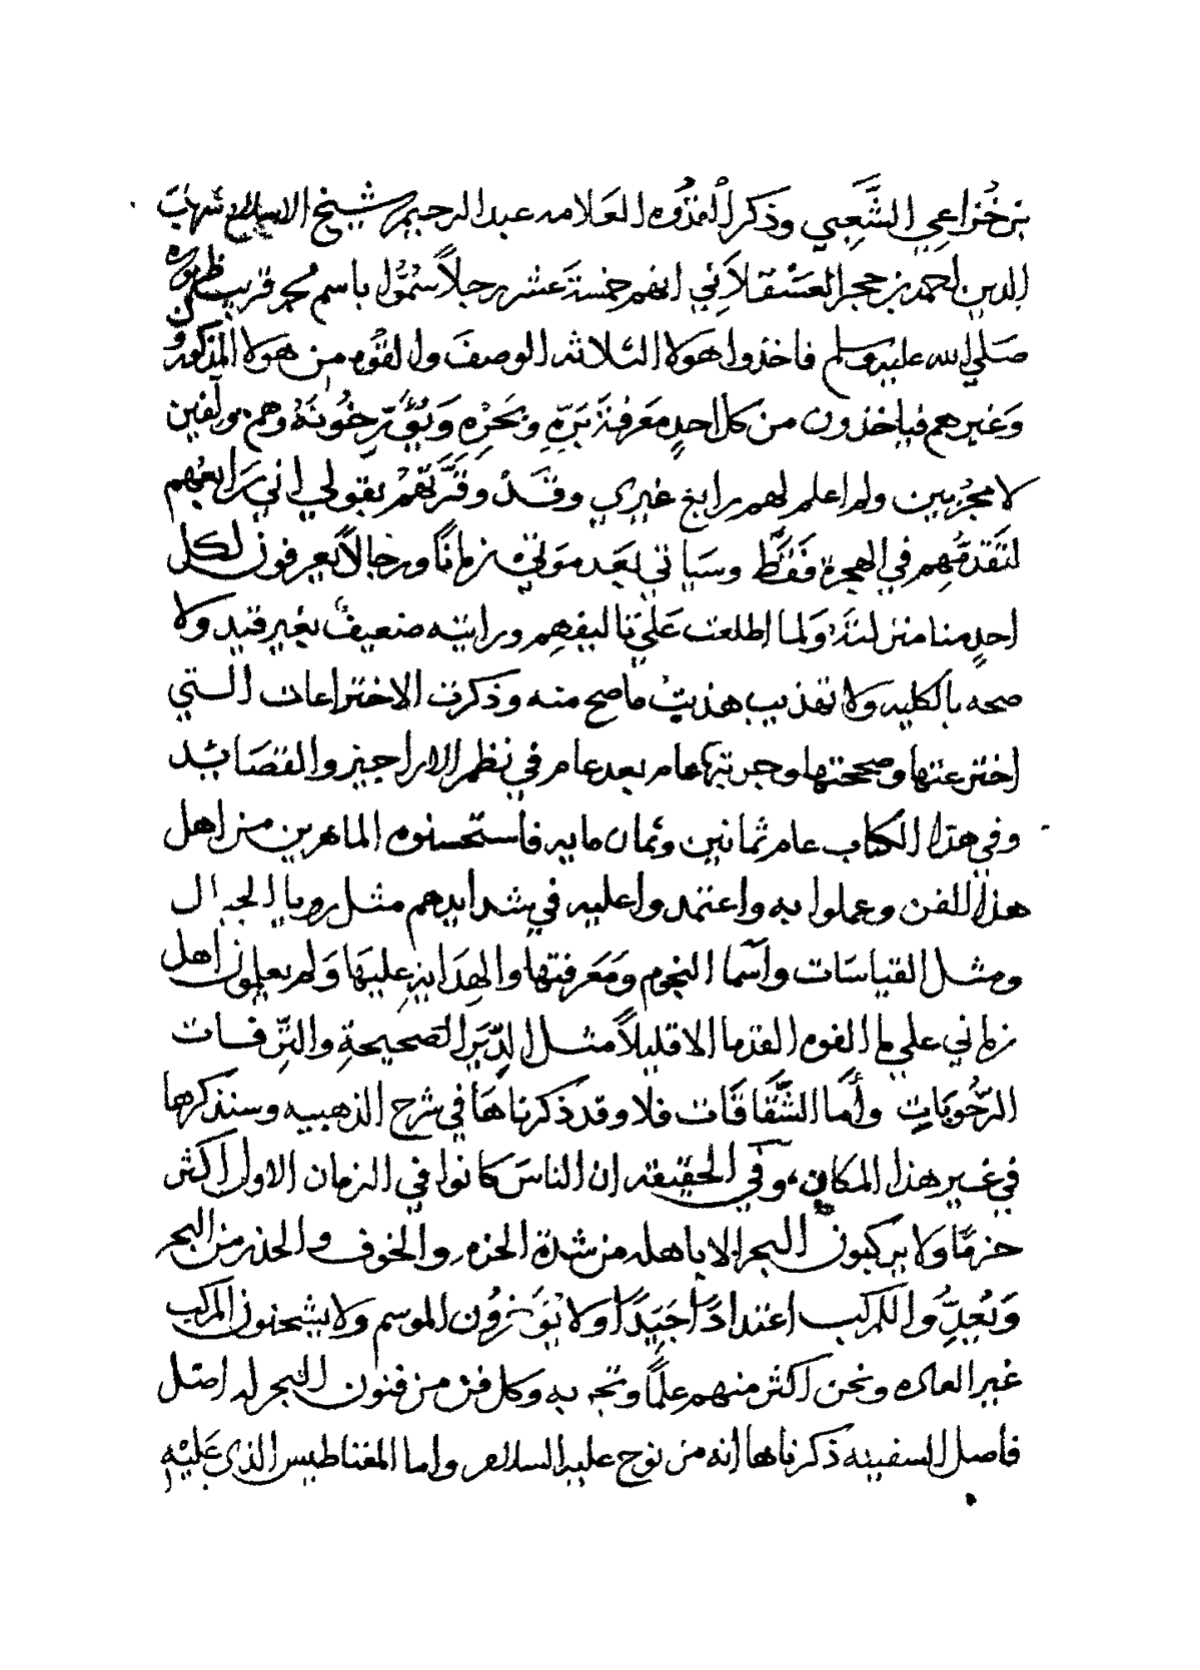 بن خزاعي الشَّعبي وذكر العلامه عبد الرحيم شيخ الاسلام شهاب
الدين احمد بن حجر العَسْقلاَني انهم خمسةَ عشر رجلاً سُمُّوا باسم محمد قريب ظهوره
صَلي الله عليه وسلم فاخذوا هولا الثلاثه الوصفَ والقوم من هولا المذكور
وَغيرهم فياخذون من كل احدٍ مَعرفة بَرِّهِ وبَحَرْهِ وَيُؤَرِّخُونَهُ وهم مولفين
لا مجرّبين ولم اعلم لهم رابع غيري وقَدْ وقَّرتَهُمْ بقولي اني رَابعُهم
لتَقَدّمُهِم في الهجرة فَقَطْ وسَياتي بَعَد مَوتي زمانًا ورجالاً يعرفون لكل
احدٍ منا منزلتَهُ وَلما اطلعت عَليَ تاليفهِم ورايته ضعيفً بغير قيد ولا
صحه بالكليه ولا تهذيب هذبتُ ما صح منه وذكرت الاختراعات التي
اخترعتها وصححتها وجربتها عام بعد عام في نظم الاراجيز والقصَايد
وفي هذا الكتاب عام ثمانين وثمان مايه فاستحسنوه الماهرين من اهل
هذا الفن وعملوا به واعتمدوا عليه في شدايدهم مثل رويا الجبال
ومثل القياسَات واسَما النجوم وَمَعَرفتها والهِدَايةِ عليهَا وَلم يعلمون اهل
زماني علي ما القوم القدما الا قليلاً مثل الدِّيَر الصَحيحةِ والتِّرفات
الرّحُويَاتِ وأَما الشَّقَاقَات فلا وقد ذكرناهَا في شرح الذهبيه وسنذكرها
في غير هذا المكان، وفي الحقيقه ان الناسَ كانوا في الزمان الاول اكثر
حزمًا ولا يركبون البحر الا باهله من شدة الحزم والخوف والحذر من البحر
وَيُعِدُّوا المركب اعتدادًا جَيِّدًا ولا يُؤَخِّرُون الموسم ولا يشحنون المركب
غير العاده ونحن اكثر منهم علِمًا وتجربه وكل فن من فنون البحر له اصل
فاصل السفينه ذكرناها انه من نوح عليه السلام واما المغناطيس الذي عَليْه